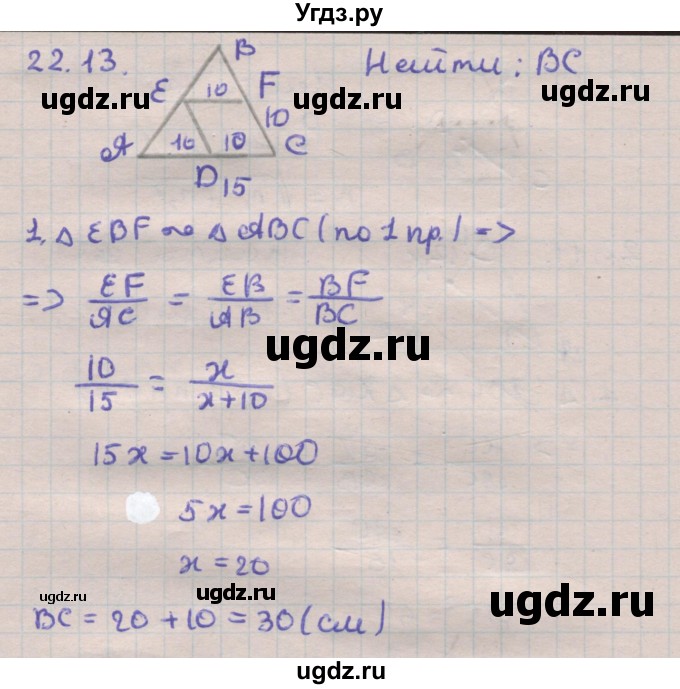 Угдз.ру
22.13.
Найти: BC
B
E
10
F
10
A
10
10
C
D
15
ugdz.ru
ugdz.ru
1. △ EBF ∾ △ ABC (по 1 пр.) =>
=> EF/AC = EB/AB = BF/BC
ugdz.ru
10/15 = x/(x+10)
15x = 10x + 100
5x = 100
x = 20
ugdz.ru
ugdz.ru
ugdz.ru
BC = 20 + 10 = 30 (см)
ugdz.ru